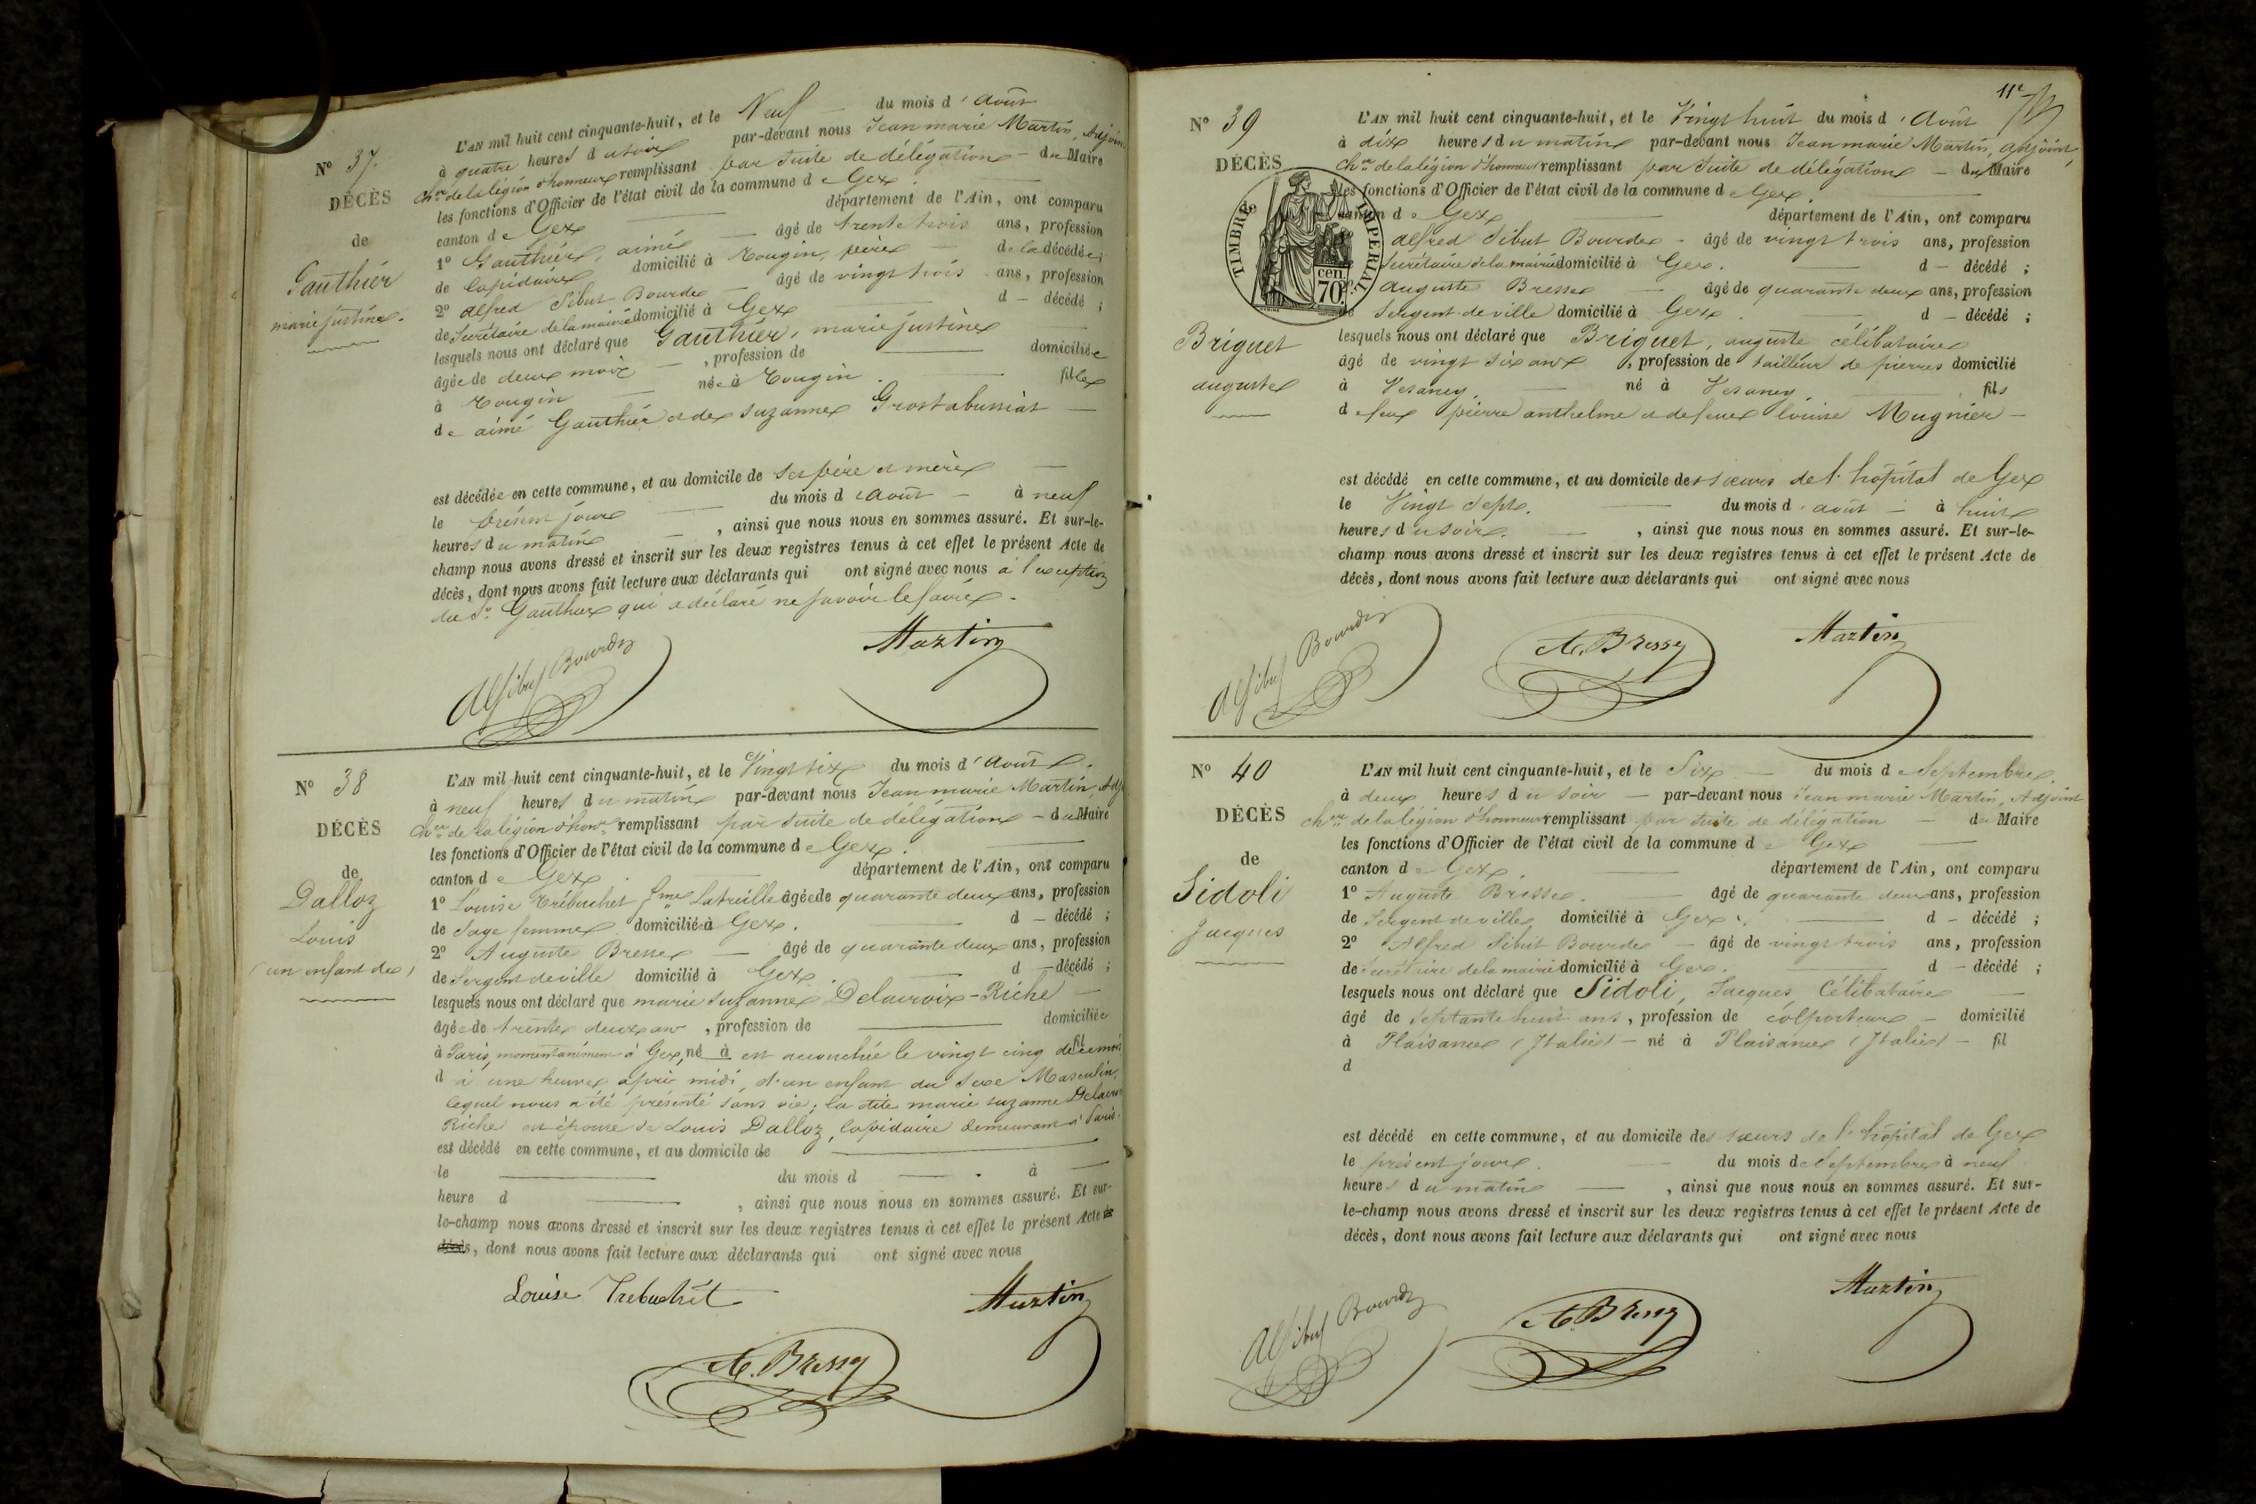 L'AN mil huit cent cinquante-huit, et le Neuf du mois d'août
N° 37.
à quatre heures du soir par-devant nous Jean marie Martin, Adjoint
DÉCÈS
cher de la légion d'honneur remplissant par suite de délégation du Maire
les fonctions d'Officier de l'état civil de la commune de Gex.
de
canton de Gex département de l'Ain, ont comparu
Gauthier
1° Gauthier, aimé âgé de trente trois ans, profession
marie justine.
de lapidaire domicilié à Tougin, père de la décédée ;
2° alfred Sibut Bourde âgé de vingt trois ans, profession
de Secrétaire de la mairie domicilié à Gex d – décédé ;
lesquels nous ont déclaré que Gauthier, marie justine
âgée de deux mois, profession de domiciliée
à Tougin née à Tougin. fille
de aimé Gauthier et de suzanne Grostabussiat
est décédée en cette commune, et au domicile de ses père et mère
le présent jour du mois d'août à neuf
heures du matin, ainsi que nous nous en sommes assuré. Et sur-le-
champ nous avons dressé et inscrit sur les deux registres tenus à cet effet le présent Acte de
décès, dont nous avons fait lecture aux déclarants qui ont signé avec nous à l'exception
du Sr. Gauthier qui a déclaré ne savoir le faire.
A Sibut Bourde Martin
N° 38
L'AN mil huit cent cinquante-huit, et le Vingt six du mois d'août.
à neuf heures du matin par-devant nous Jean marie Martin, Adj
DÉCÈS
cher de la légion d'honr remplissant par suite de délégation du Maire
les fonctions d'Officier de l'état civil de la commune de Gex.
de
canton de Gex département de l'Ain, ont comparu
Dalloz
1° Louise Trébuchet fme Latreille âgée de quarante deux ans, profession
Louis
de Sage femme domiciliée à Gex. d – décédé ;
2° Auguste Bresse âgé de quarante deux ans, profession
(un enfant de)
de Sergent de ville domicilié à Gex. d – décédé ;
lesquels nous ont déclaré que marie suzanne Delacroix-Riche
âgée de trente deux ans, profession de domiciliée
à Paris, momentanément à Gex, né à est accouchée le vingt cinq de ce mois fil
d à une heure après midi, d'un enfant du sexe Masculin,
lequel nous a été présenté sans vie ; la dite marie suzanne Delacroix
Riche est épouse de Louis Dalloz, lapidaire demeurant à Paris.
est décédé en cette commune, et au domicile de
le du mois d à
heure d, ainsi que nous nous en sommes assuré. Et sur-
le-champ nous avons dressé et inscrit sur les deux registres tenus à cet effet le présent Acte de
décès, dont nous avons fait lecture aux déclarants qui ont signé avec nous
Louise Trebuchêt Martin
A. Bresse
11e
N° 39
L'AN mil huit cent cinquante-huit, et le Vingt huit du mois d'Août
à dix heures du matin par-devant nous Jean marie Martin, adjoint,
DÉCÈS
cher de la légion d'honneur remplissant par suite de délégation du Maire
les fonctions d'Officier de l'état civil de la commune de Gex.
de
TIMBRE IMPÉRIAL
70 cen.
canton de Gex département de l'Ain, ont comparu
alfred Sibut Bourde âgé de vingt trois ans, profession
Secrétaire de la mairie domicilié à Gex. d – décédé ;
auguste Bresse âgé de quarante deux ans, profession
de Sergent de ville domicilié à Gex. d – décédé ;
Briguet
auguste
lesquels nous ont déclaré que Briguet, auguste célibataire
âgé de vingt six ans, profession de tailleur de pierres domicilié
à Vesancy. né à Vesancy. fils
de feu pierre anthelme et de feue louise Mugnier
est décédé en cette commune, et au domicile des sœurs de l'hôpital de Gex
le Vingt Sept. du mois d'août à huit
heures du soir., ainsi que nous nous en sommes assuré. Et sur-le-
champ nous avons dressé et inscrit sur les deux registres tenus à cet effet le présent Acte de
décès, dont nous avons fait lecture aux déclarants qui ont signé avec nous
A Sibut Bourde A. Bresse Martin
N° 40
L'AN mil huit cent cinquante-huit, et le Six du mois de Septembre.
à deux heures du soir par-devant nous Jean marie Martin, Adjoint
DÉCÈS
cher de la légion d'honneur remplissant par suite de délégation du Maire
les fonctions d'Officier de l'état civil de la commune de Gex
de
canton de Gex. département de l'Ain, ont comparu
Sidoli
1° Auguste Bresse. âgé de quarante deux ans, profession
Jacques
de Sergent de ville domicilié à Gex. d – décédé ;
2° Alfred Sibut Bourde âgé de vingt trois ans, profession
de Secrétaire de la mairie domicilié à Gex. d – décédé ;
lesquels nous ont déclaré que Sidoli, Jacques, Célibataire
âgé de septante huit ans, profession de colporteur domicilié
à Plaisance (Italie) né à Plaisance (Italie) fil
d
est décédé en cette commune, et au domicile des sœurs de l'hôpital de Gex
le présent jour. du mois de Septembre à neuf
heures du matin, ainsi que nous nous en sommes assuré. Et sur-
le-champ nous avons dressé et inscrit sur les deux registres tenus à cet effet le présent Acte de
décès, dont nous avons fait lecture aux déclarants qui ont signé avec nous
A Sibut Bourde A. Bresse Martin